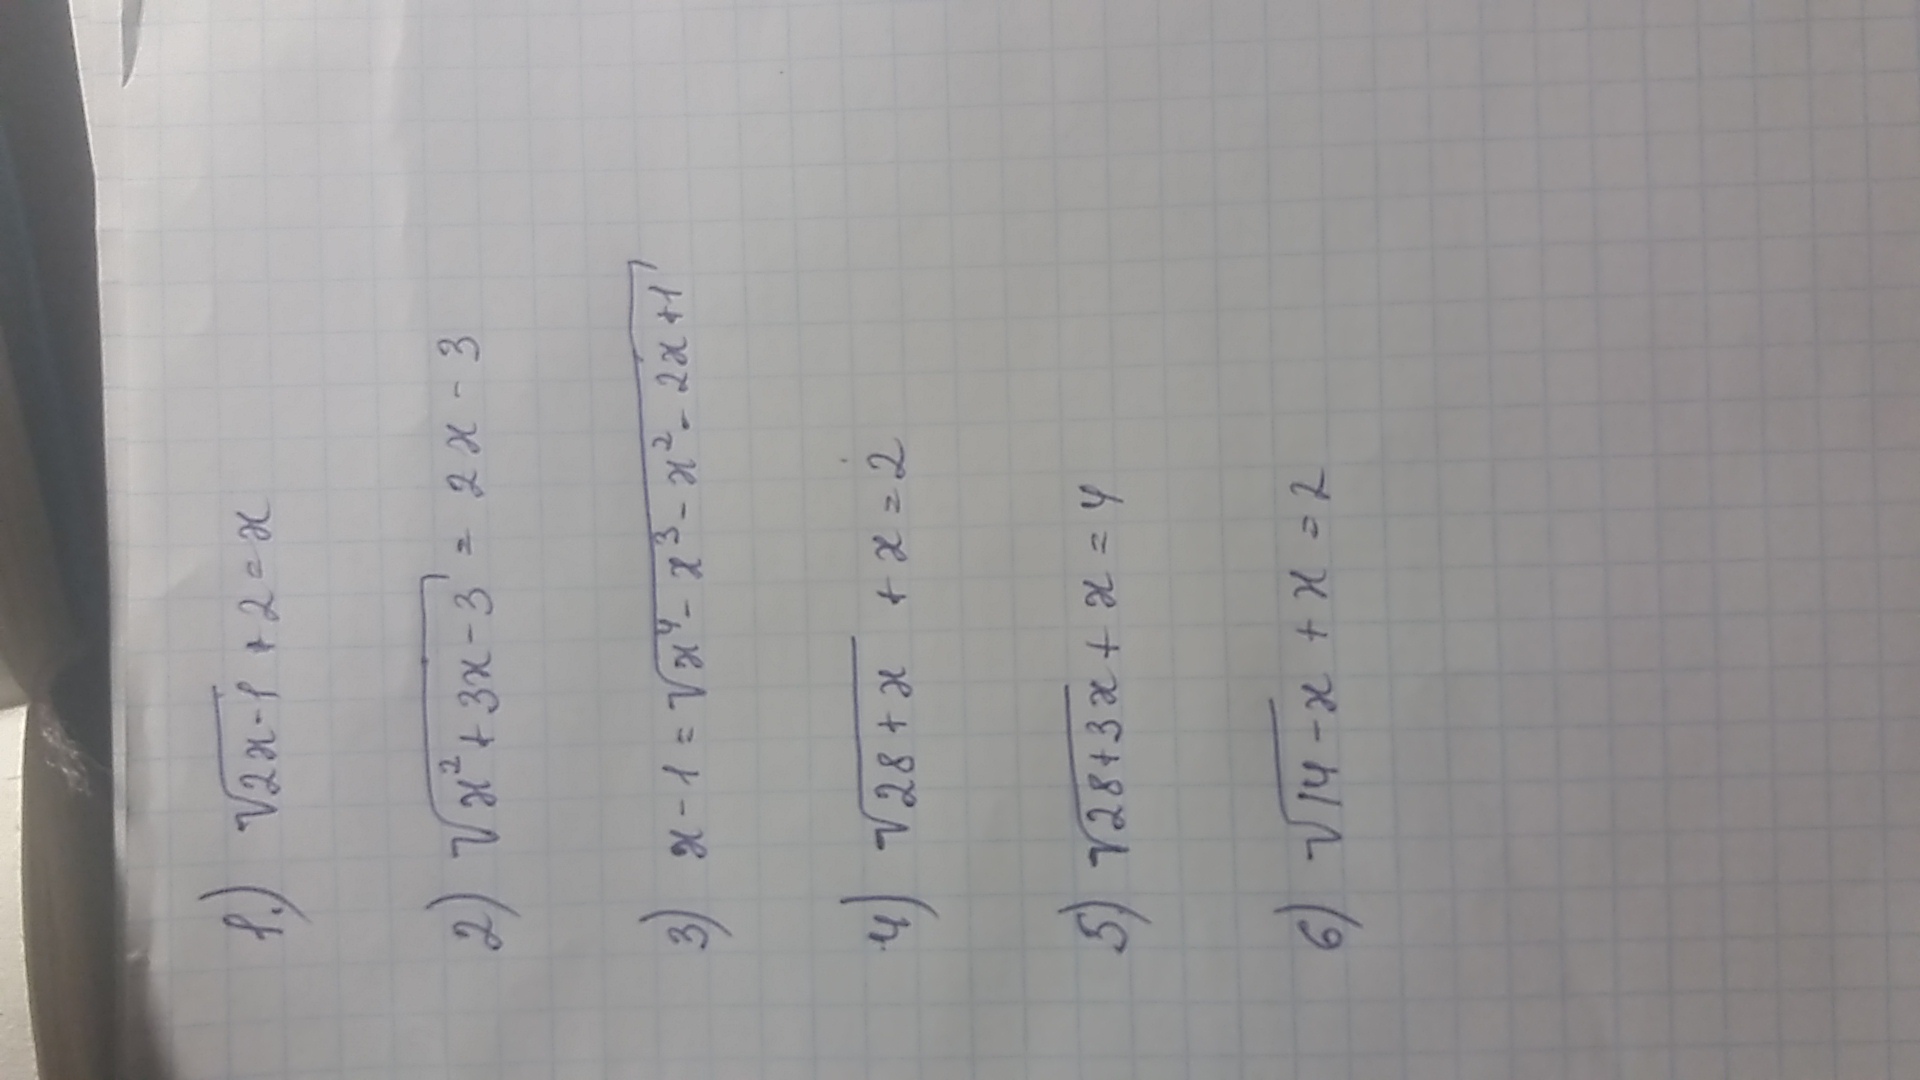 1.) √(2x-1) + 2 = x
2) √(x² + 3x - 3) = 2x - 3
3) x - 1 = √(x⁴ - x³ - x² - 2x + 1)
4) √(28 + x) + x = 2
5) √(28 + 3x) + x = 4
6) √(14 - x) + x = 2